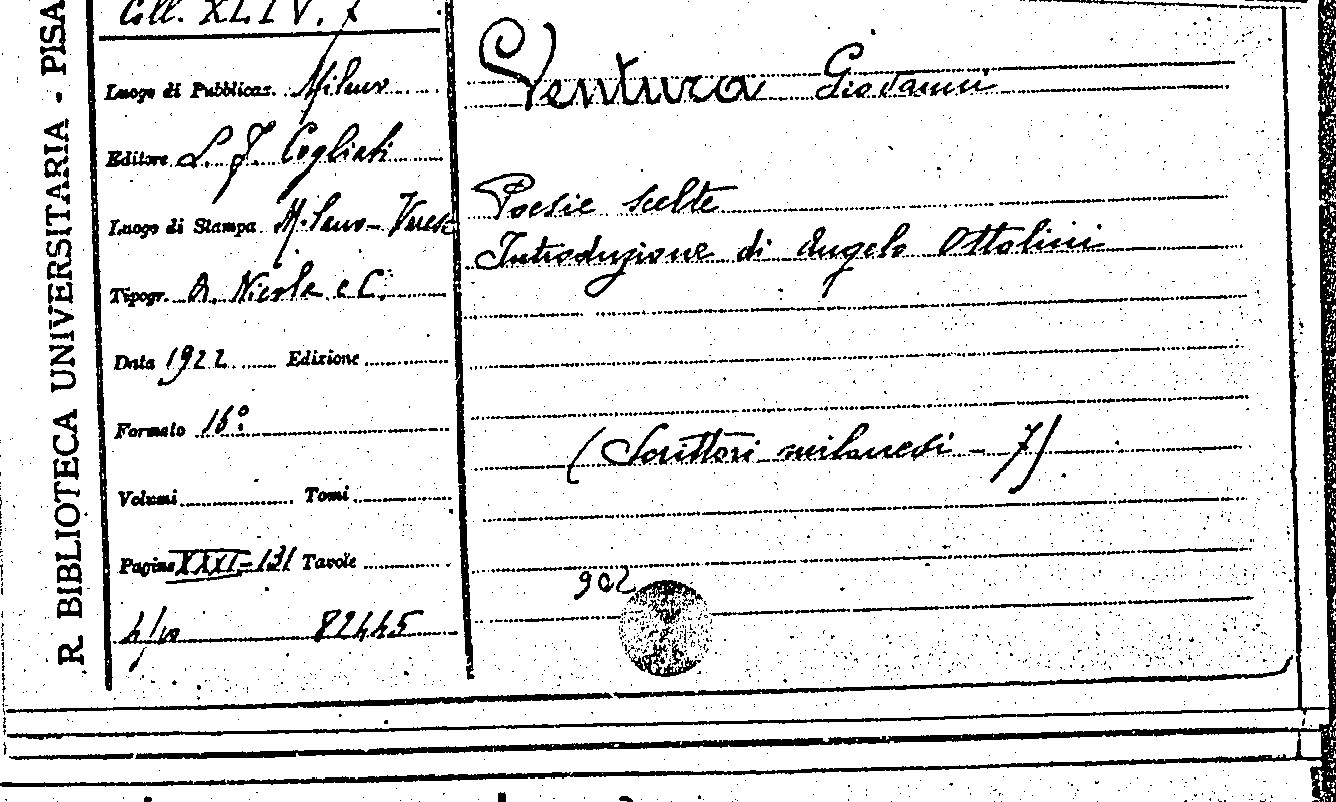 R. BIBLIOTECA UNIVERSITARIA - PISA
Coll. XLIV. 7
Luogo di Pubblicaz. Milano
Editore L. F. Cogliati
Luogo di Stampa Milano - Varese
Tipogr. A. Nicola e C.
Data 1922 Edizione
Formato 16º
Volumi Tomi
Pagine XXXI-131 Tavole
82445
Ventura Giovanni
Poesie scelte
Introduzione di Angelo Ottolini
(Scrittori milanesi - 7)
902